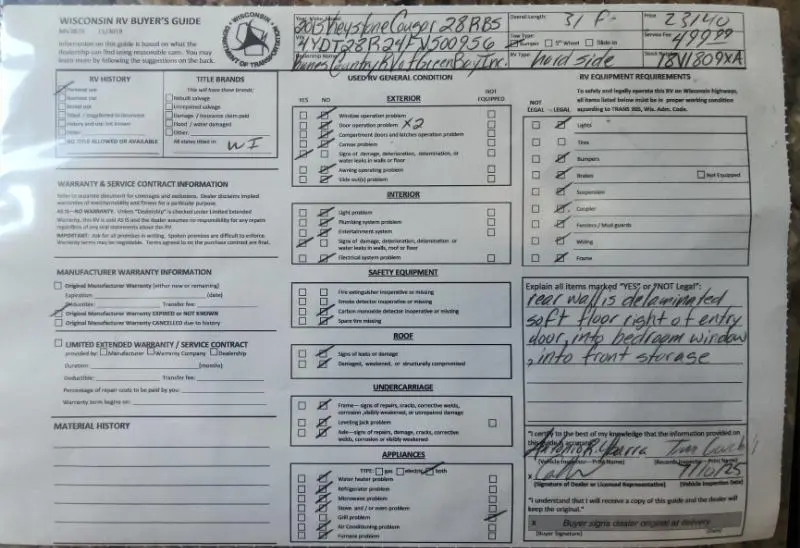 WISCONSIN RV BUYER'S GUIDE
Information on this guide is based on what the
dealership can find using reasonable care. You may
learn more by following the suggestions on the back.
WISCONSIN
DEPARTMENT OF TRANSPORTATION
2015 Keystone Cougar 28RBS
4YDT28R24FV500956
Overall Length: 31 F
Price 23140
Tow Type:
Bumper 5th Wheel Slide-in
Service Fee 499.99
RV Type: hard side
Stock Number 18V1809XA
RV HISTORY
TITLE BRANDS
This will have these brands:
Rebuilt salvage
Unrepaired salvage
Damage / Insurance claim paid
Flood / water damaged
Other:
NO TITLE ALLOWED OR AVAILABLE
All states titled in: WI
WARRANTY & SERVICE CONTRACT INFORMATION
Refer to separate document for coverages and exclusions. Dealer disclaims implied
warranties of merchantability and fitness for a particular purpose.
AS IS—NO WARRANTY. Unless "Dealership" is checked under Limited Extended
Warranty, this RV is sold AS IS and the dealer assumes no responsibility for any repairs
regardless of any oral statements about this RV.
IMPORTANT: Ask for all promises in writing. Spoken promises are difficult to enforce.
Warranty terms may be negotiable. Terms agreed to on the purchase contract are final.
MANUFACTURER WARRANTY INFORMATION
Original Manufacturer Warranty (either now or remaining)
Expiration (date)
Deductible: Transfer fee:
Original Manufacturer Warranty EXPIRED or NOT KNOWN
Original Manufacturer Warranty CANCELLED due to history
LIMITED EXTENDED WARRANTY / SERVICE CONTRACT
provided by: Manufacturer Warranty Company Dealership
Duration: (months)
Deductible: Transfer fee:
Percentage of repair costs to be paid by you:
Warranty term begins on:
MATERIAL HISTORY
USED RV GENERAL CONDITION
YES NO
EXTERIOR
NOT EQUIPPED
Window operation problem
Door operation problem X2
Compartment doors and latches operation problem
Canvas problem
Signs of damage, deterioration, delamination, or
water leaks in walls or floor
Awning operating problem
Slide out(s) problem
INTERIOR
Light problem
Plumbing system problem
Entertainment system
Signs of damage, deterioration, delamination or
water leaks in walls, roof or floor
Electrical system problem
SAFETY EQUIPMENT
Fire extinguisher inoperative or missing
Smoke detector inoperative or missing
Carbon monoxide detector inoperative or missing
Spare tire missing
ROOF
Signs of leaks or damage
Damaged, weakened, or structurally compromised
UNDERCARRIAGE
Frame— signs of repairs, cracks, corrective welds,
corrosion, visibly weakened, or unrepaired damage
Leveling jack problem
Axle—signs of repairs, damage, cracks, corrective
welds, corrosion or visibly weakened
APPLIANCES
TYPE: gas electric both
Water heater problem
Refrigerator problem
Microwave problem
Stove and / or oven problem
Grill problem
Air Conditioning problem
Furnace problem
RV EQUIPMENT REQUIREMENTS
To safely and legally operate this RV on Wisconsin highways,
all items listed below must be in proper working condition
according to TRANS 305, Wis. Adm. Code.
NOT LEGAL LEGAL
Lights
Tires
Bumpers
Brakes Not Equipped
Suspension
Coupler
Fenders / Mud guards
Wiring
Frame
Explain all items marked "YES" or "NOT Legal":
rear wall is delaminated
soft floor right of entry
door, into bedroom window
, into front storage
"I certify to the best of my knowledge that the information provided on
this guide is accurate."
(Vehicle Inspector—Print Name)
X
7/10/25
(Signature of Dealer or Licensed Representative) (Vehicle Inspection Date)
"I understand that I will receive a copy of this guide and the dealer will
keep the original."
X Buyer signs dealer original at delivery
(Buyer Signature) (Date)